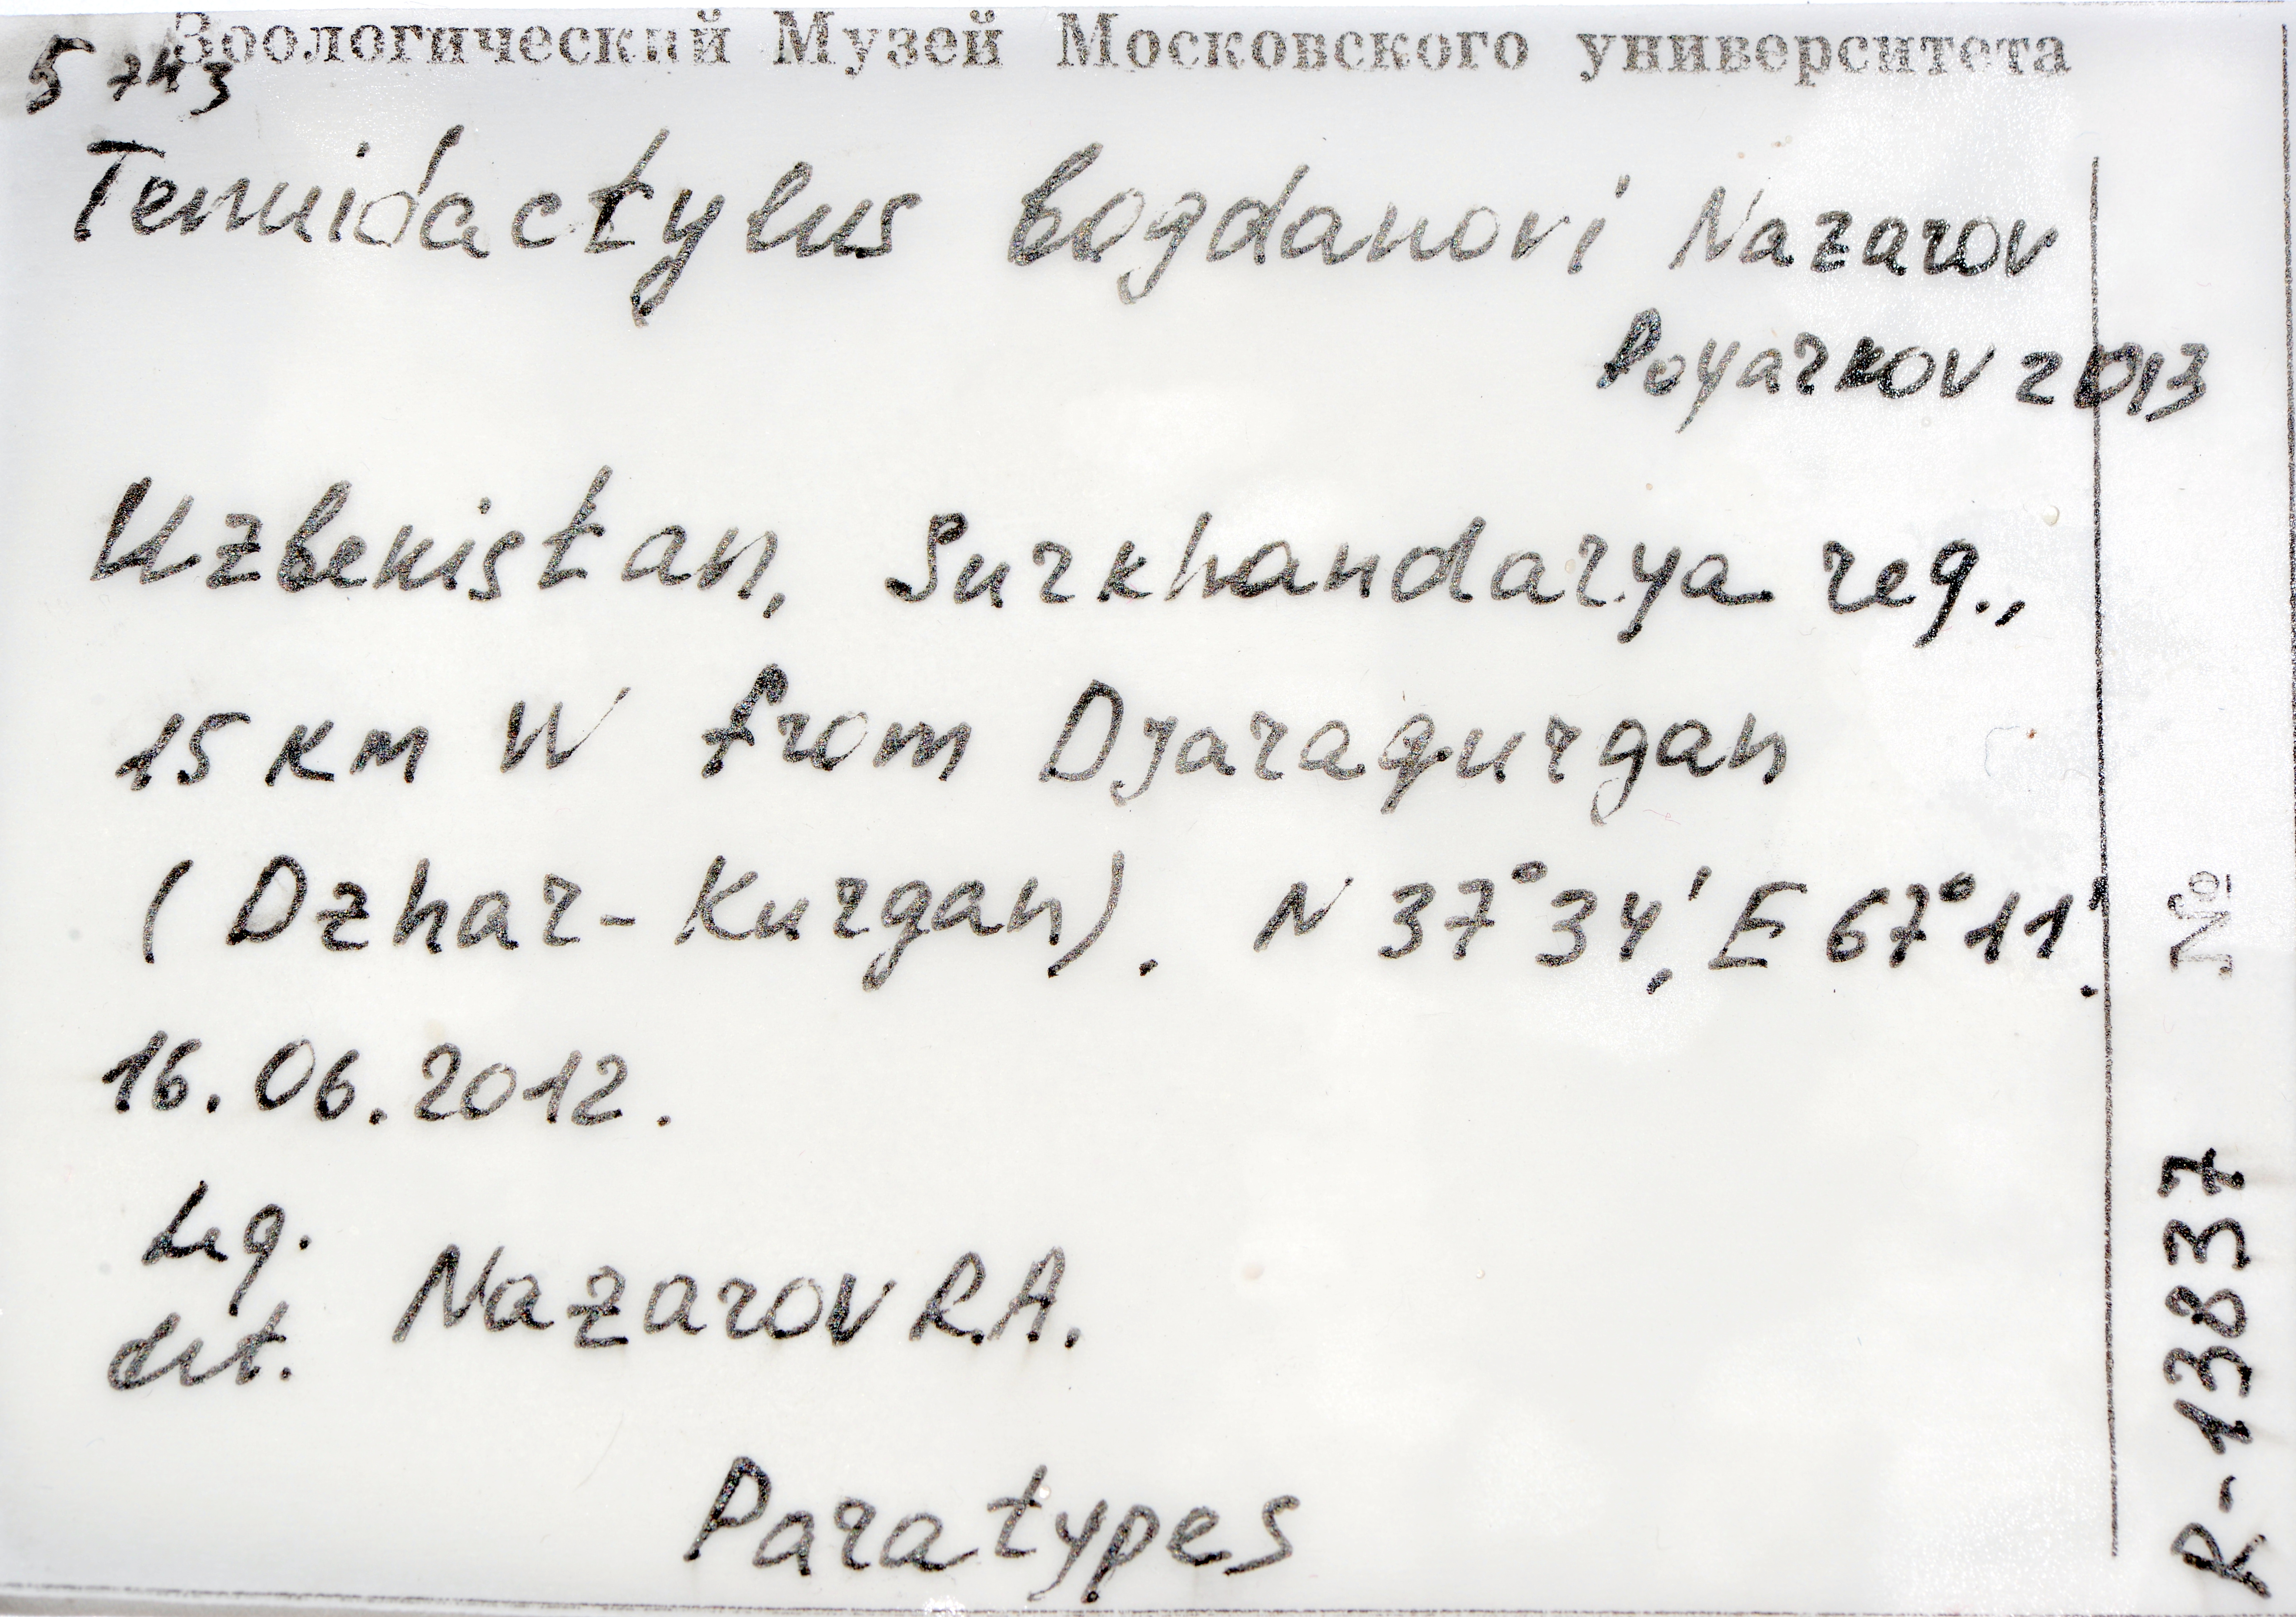 Зоологический Музей Московского университета
5 экз
Tenuidactylus bogdanovi Nazarov
Poyarkov 2013
Uzbekistan, Surkhandarya reg.,
15 km W from Djaraqurgan
(Dzhar-Kurgan). N 37°34', E 67°11'.
16.06.2012.
Leg.
det. Nazarov R.A.
Paratypes
№ R-13837